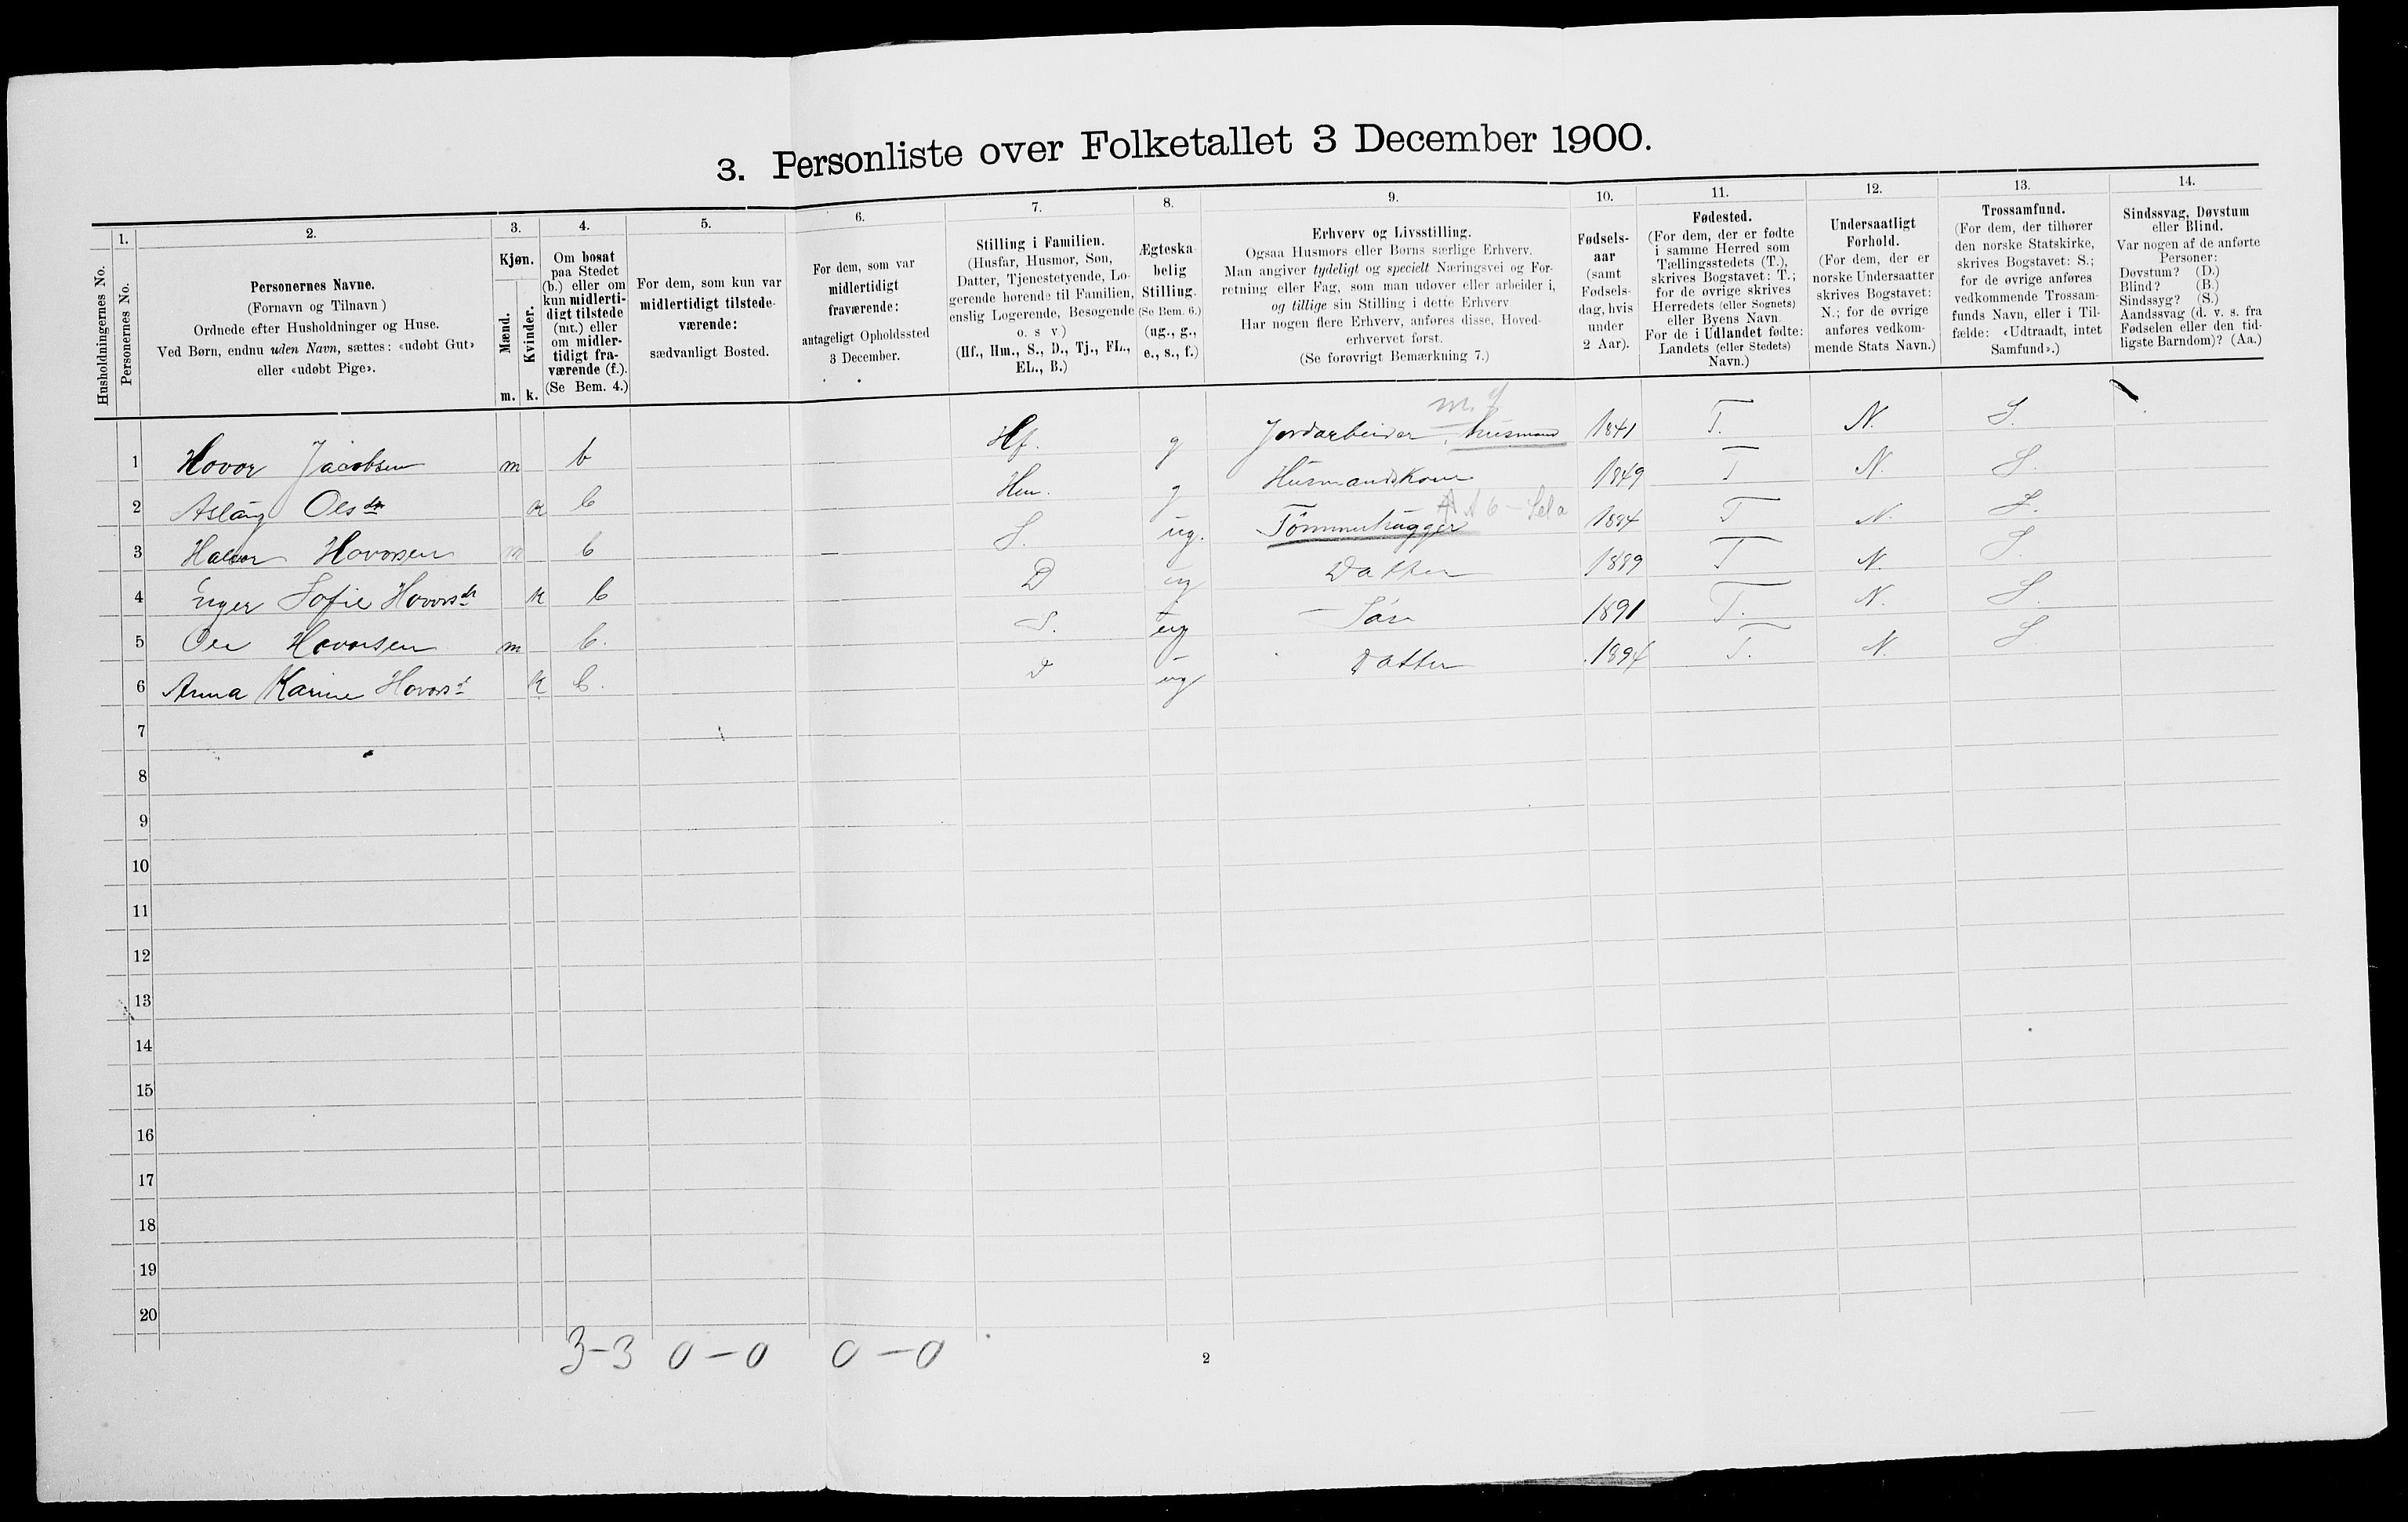 3. Personliste over Folketallet 3 December 1900.
1. 2. 3. 4. 5. 6. 7. 8. 9. 10. 11. 12. 13. 14.
Husholdningernes No.
Personernes No.
Personernes Navne.
(Fornavn og Tilnavn)
Ordnede efter Husholdninger og Huse.
Ved Børn, endnu uden Navn, sættes: «udøbt Gut»
eller «udøbt Pige».
Kjøn.
Mænd.
Kvinder.
m. k.
Om bosat
paa Stedet
(b.) eller om
kun midlerti-
digt tilstede
(mt.) eller
om midler-
tidigt fra-
værende (f.).
(Se Bem. 4.)
For dem, som kun var
midlertidigt tilstede-
værende:
sædvanligt Bosted.
For dem, som var
midlertidigt
fraværende:
antageligt Opholdssted
3 December.
Stilling i Familien.
(Husfar, Husmor, Søn,
Datter, Tjenestetyende, Lo-
gerende hørende til Familien,
enslig Logerende, Besøgende
o. s v)
(Hf., Hm., S., D., Tj., FL.,
EL., B.)
Ægteska-
belig
Stilling.
(Se Bem. 6.)
(ug., g.,
e., s., f.)
Erhverv og Livsstilling.
Ogsaa Husmors eller Børns særlige Erhverv.
Man angiver tydeligt og specielt Næringsvei og For-
retning eller Fag, som man udøver eller arbeider i,
og tillige sin Stilling i dette Erhverv
Har nogen flere Erhverv, anføres disse, Hoved-
erhvervet først.
(Se forøvrigt Bemærkning 7.)
Fødsels-
aar
(samt
Fødsels-
dag, hvis
under
2 Aar).
Fødested.
(For dem, der er fødte
i samme Herred som
Tællingsstedets (T.),
skrives Bogstavet: T.;
for de øvrige skrives
Herredets (eller Sognets)
eller Byens Navn.
For de i Udlandet fødte:
Landets (eller Stedets)
Navn.)
Undersaatligt
Forhold.
(For dem, der er
norske Undersaatter
skrives Bogstavet:
N.; for de øvrige
anføres vedkom-
mende Stats Navn.)
Trossamfund.
(For dem, der tilhører
den norske Statskirke,
skrives Bogstavet: S.;
for de øvrige anføres
vedkommende Trossam-
funds Navn, eller i Til-
fælde: «Udtraadt, intet
Samfund».)
Sindssvag, Døvstum
eller Blind.
Var nogen af de anførte
Personer:
Døvstum? (D.)
Blind? (B.)
Sindssyg? (S.)
Aandssvag (d. v. s. fra
Fødselen eller den tid-
ligste Barndom)? (Aa.)
1 Hovor Jacobsen m b Hf. g Jordarbeider, husmand 1841 T. N. S.
2 Aslaug Olsdtr k b Hm. g Husmandskone 1849 T N. S.
3 Halvor Hovorsen m b S. ug. Tømmerhugger 1884 T N. S.
4 Inger Sofie Hovorsdt k b D ug Datter 1889 T N. S.
5 Ole Hovorsen m b. S. ug Søn 1891 T. N. S.
6 Anna Karine Hovorsd k b. D ug Datter 1894 T. N. S
7
8
9
10
11
12
13
14
15
16
17
18
19
20
3-3 0-0 0-0
2